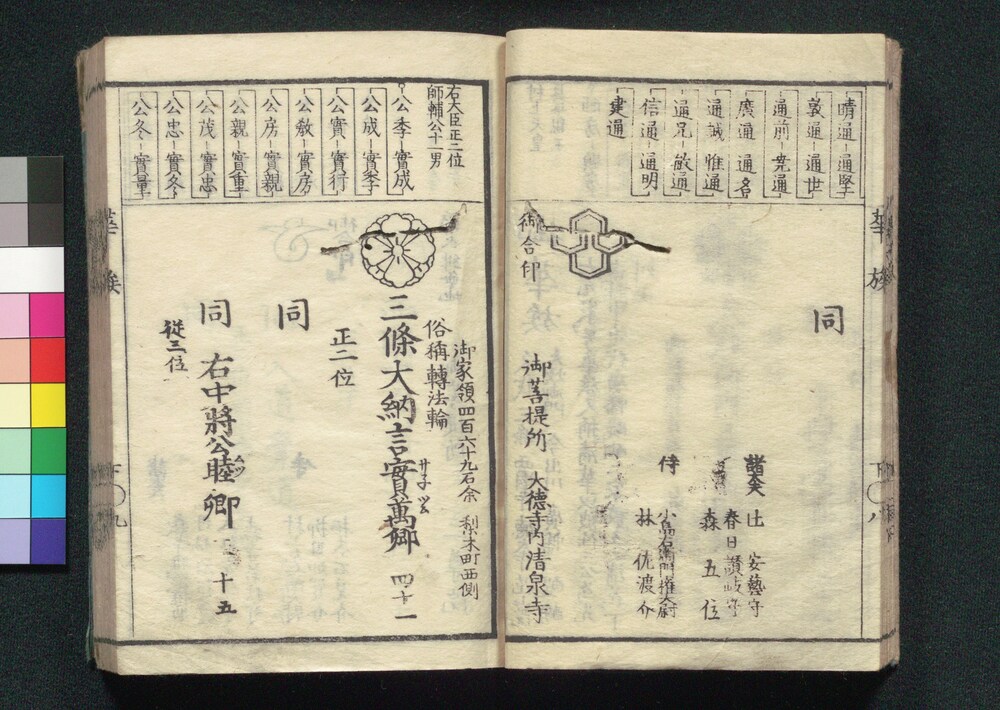 晴通 通堅
敦通 通世
通前 尭通
廣通 通名
通誠 惟通
通兄 敏通
信通 通明
建通
同
諸大夫 辻 安藝守
春日讃岐守
森 五位
侍 小島右衛門権大尉
林 佐渡介
御合印
御菩提所 大徳寺内清泉寺
華族
下
八
右大臣正二位
師輔公十一男
公季 實成
公成 實季
公實 實行
公教 實房
公房 實親
公親 實重
公茂 實忠
公忠 實冬
公冬 實量
御家領四百六十九石余 梨木町西側
俗稱轉法輪
三條大納言實萬卿 四十一
サネツム
正二位
同
同 右中將公睦卿 十五
従三位
華族
下
九